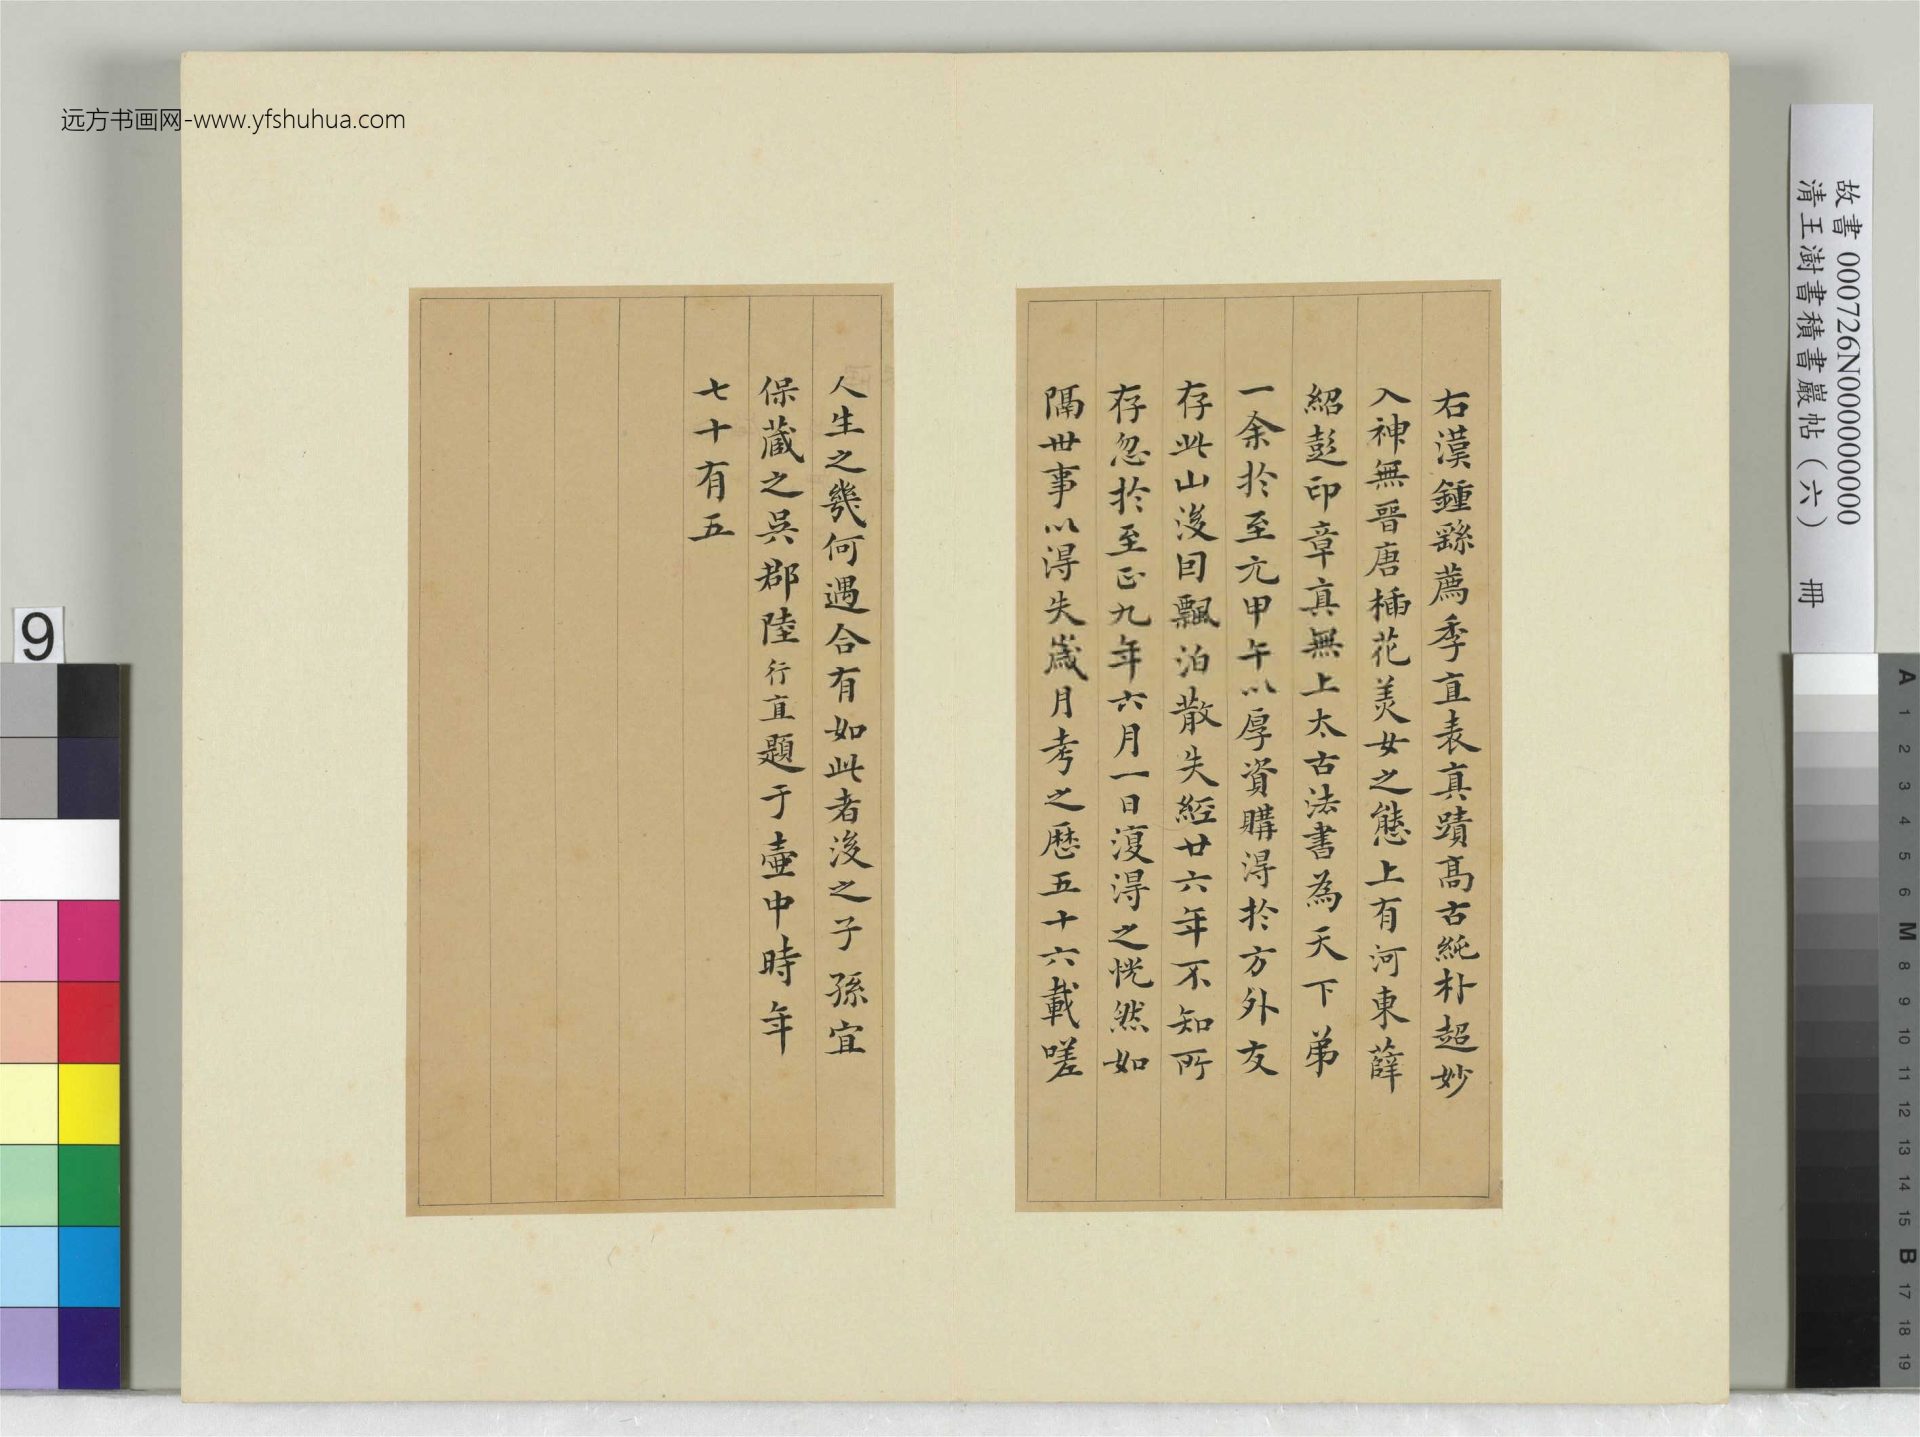 远方书画网-www.yfshuhua.com
右漢鍾繇薦季直表真蹟高古純朴超妙
入神無晉唐插花美女之態上有河東薛
紹彭印章真無上太古法書為天下弟
一余於至元甲午以厚資購得於方外友
存此山後因飄泊散失經廿六年不知所
存忽於至正九年六月一日復得之恍然如
隔世事以得失歲月考之歷五十六載嗟
人生之幾何遇合有如此者後之子孫宜
保藏之吳郡陸行直題于壺中時年
七十有五
故書 00726N000000000
清王澍書積書巖帖（六） 冊
9
A
1
2
3
4
5
6
M
8
9
10
11
12
13
14
15
B
17
18
19